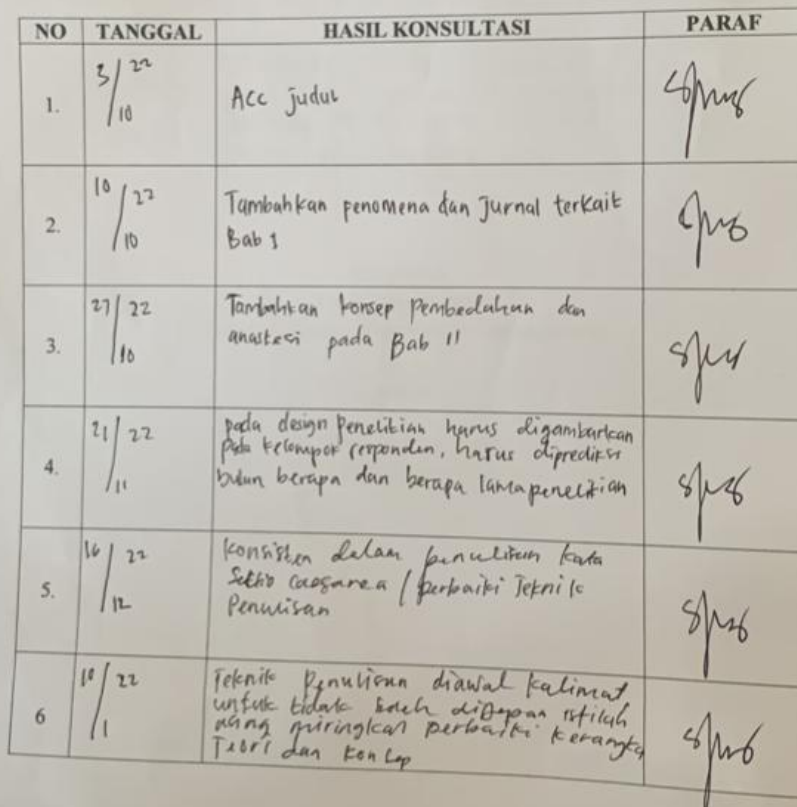 NO TANGGAL HASIL KONSULTASI PARAF
1. 3/22/10 Acc judul
2. 10/22/10 Tambahkan penomena dan jurnal terkait
Bab 1
3. 27/22/10 Tambahkan konsep pembedahan dan
anastesi pada Bab II
4. 21/22/11 pada design penelitian harus digambarkan
pada kelompok responden, harus diprediksi
bulan berapa dan berapa lama penelitian
5. 16/22/12 Konsisten dalam penulisan kata
Sectio caesarea / perbaiki Teknik
Penulisan
6 10/22/1 Teknik Penulisan diawal kalimat
untuk tidak boleh didepan istilah
miringkan perbaiki kerangka
Teori dan konsep